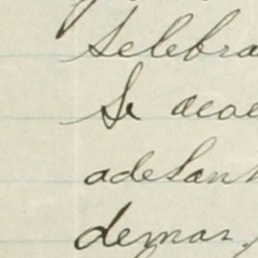 Selebra
Se acae
adelant
deman,